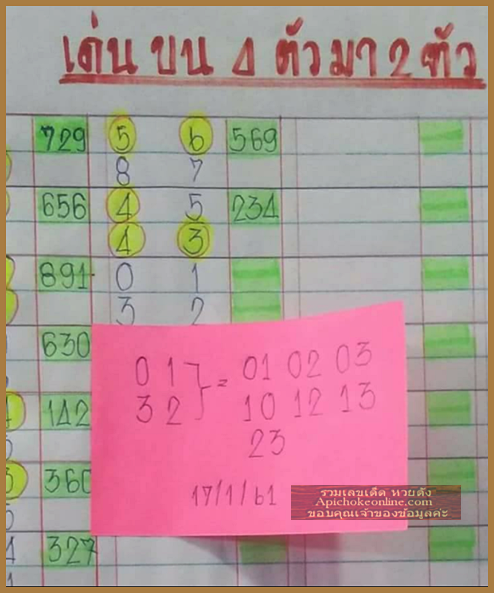 เด่น บน 4 ตัวมา 2 ตัว
729 5 6 569
8 7
656 4 5 234
4 3
891 0 1
3 2
630
142
360
327
0 1 } = 01 02 03
3 2 10 12 13
23
17/1/61
รวมเลขเด็ด หวยดัง
Apichokeonline.com
ขอบคุณเจ้าของข้อมูลค่ะ